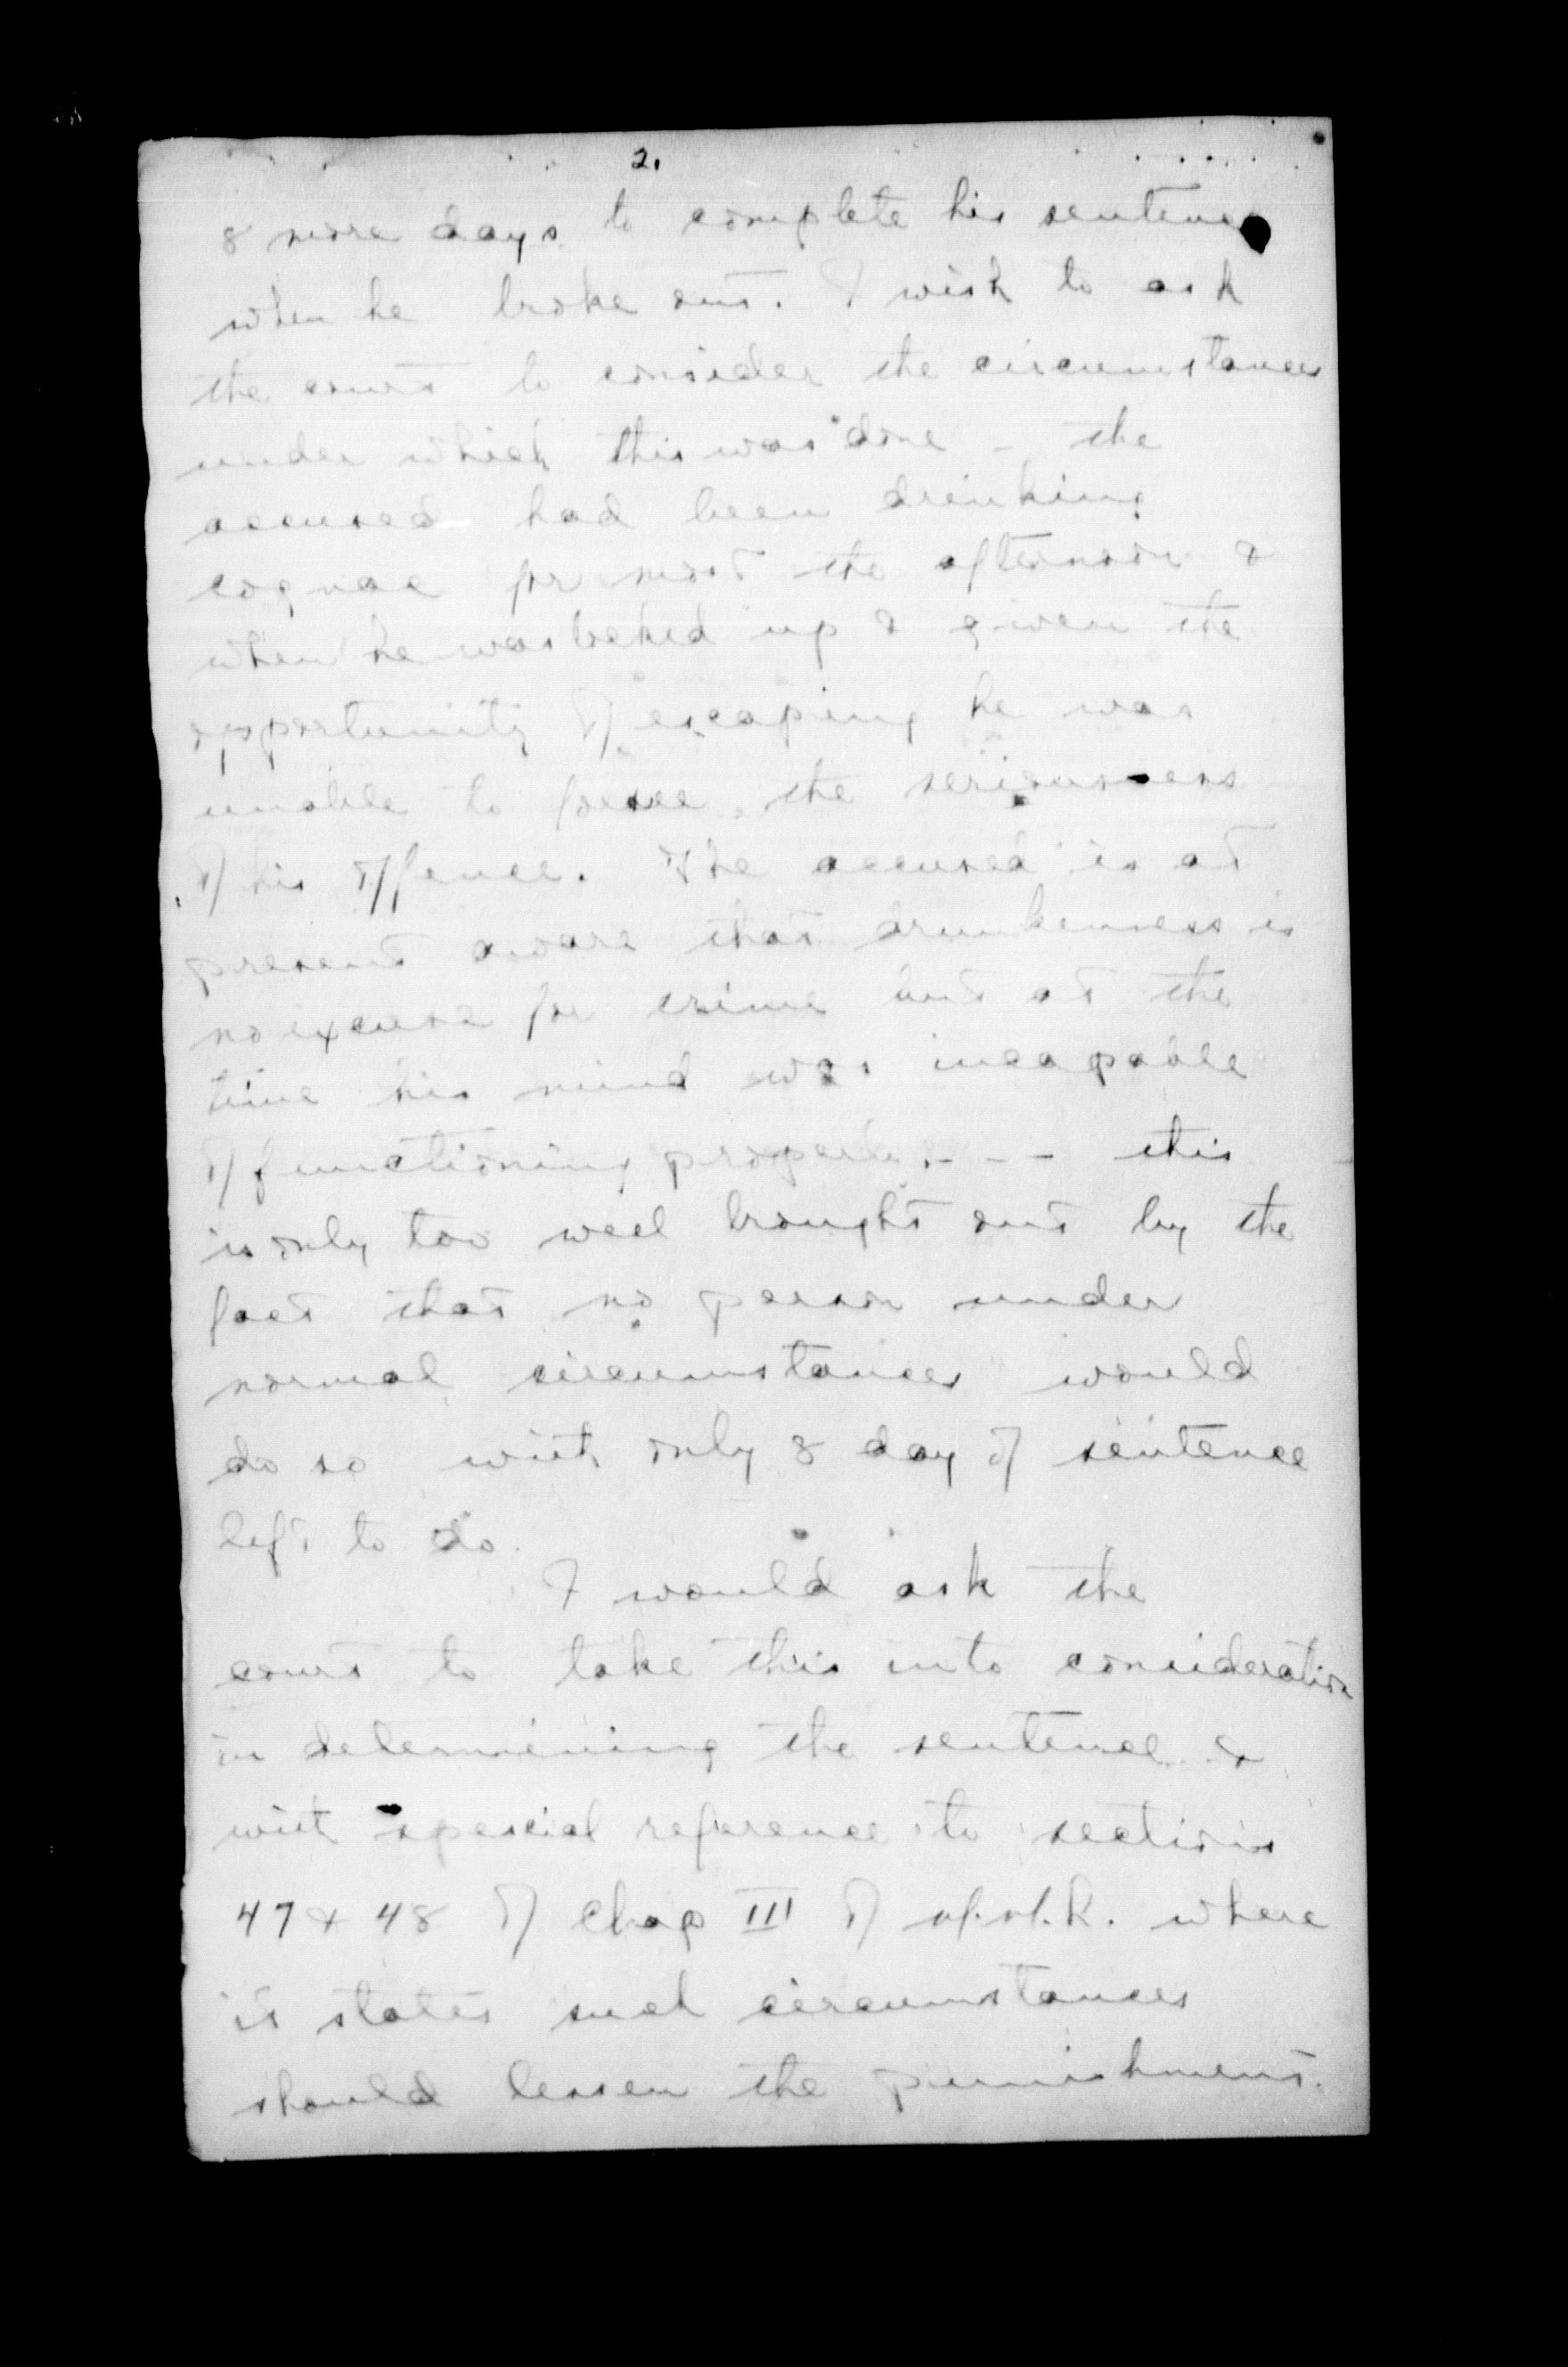 2.
8 more days to complete his sentence
when he broke out. I wish to ask
the court to consider the circumstances
under which this was done - the
accused had been drinking
cognac for most the afternoon &
when he was locked up & given the
opportunity of escaping he was
unable to foresee the seriousness
of his offence. The accused is at
present aware that drunkenness is
no excuse for crime but at the
time his mind was incapable
of functioning properly. - - - this
is only too well brought out by the
fact that no person under
normal circumstances would
do so with only 8 day of sentence
left to do.
I would ask the
court to take this into consideration
in determining the sentence &
with special reference to sections
47 & 48 of Chap III of M.M.L. where
it states such circumstances
should lessen the punishment.